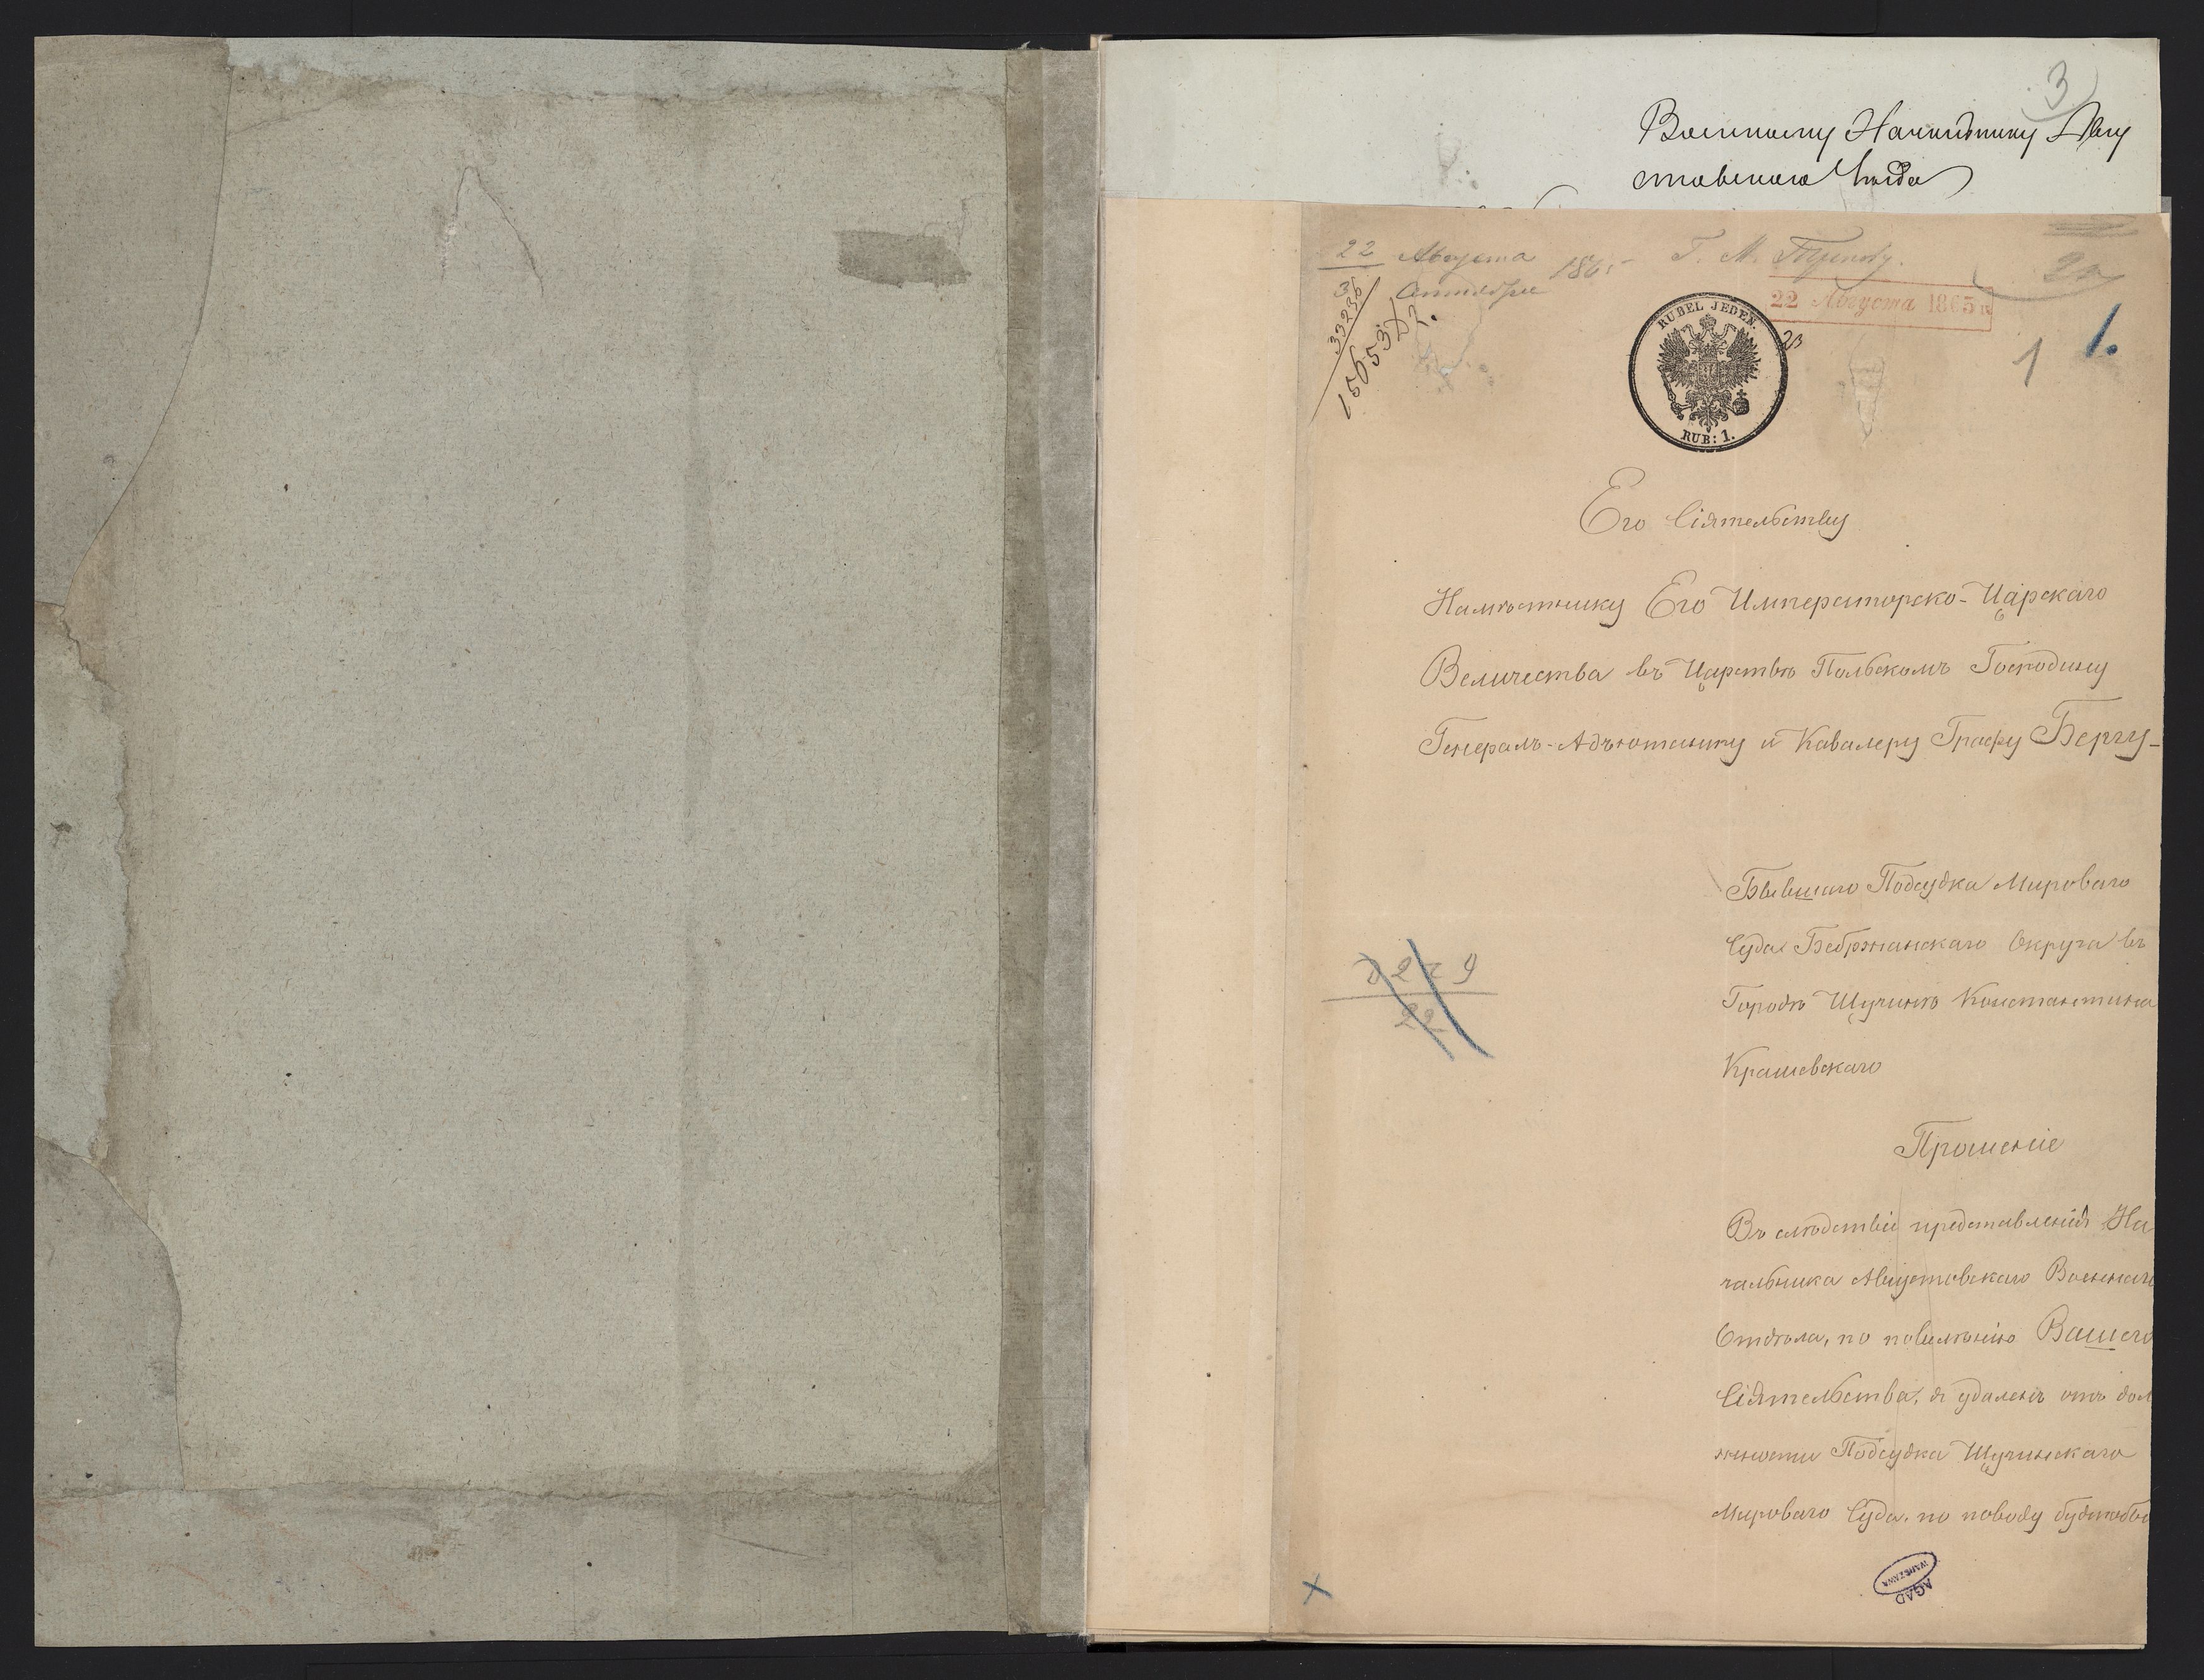 3
Военному Начальнику Авгу
стовскаго Отдѣла
22 Августа 1865
3 Сентября
Г. М. Трепову.
22 Августа 1865 г.
33236
15653
1
1.
RUBEL JEDEN.
RUB: 1.
Его Сіятельству
Намѣстнику Его Императорско-Царскаго
Величества въ Царствѣ Польскомъ Господину
Генералъ-Адъютанту и Кавалеру Графу Бергу
Бывшаго Подсудка Мироваго
Суда Бебржанскаго Округа въ
Городѣ Щучинѣ Константина
Крашевскаго
22
Прошеніе
Въ слѣдствіе представленія На
чальника Августовскаго Военнаго
Отдѣла, по повелѣнію Вашего
Сіятельства, я удаленъ отъ дол
жности Подсудка Щучинскаго
Мироваго Суда, по поводу будтобы
AGAD
WARSZAWA